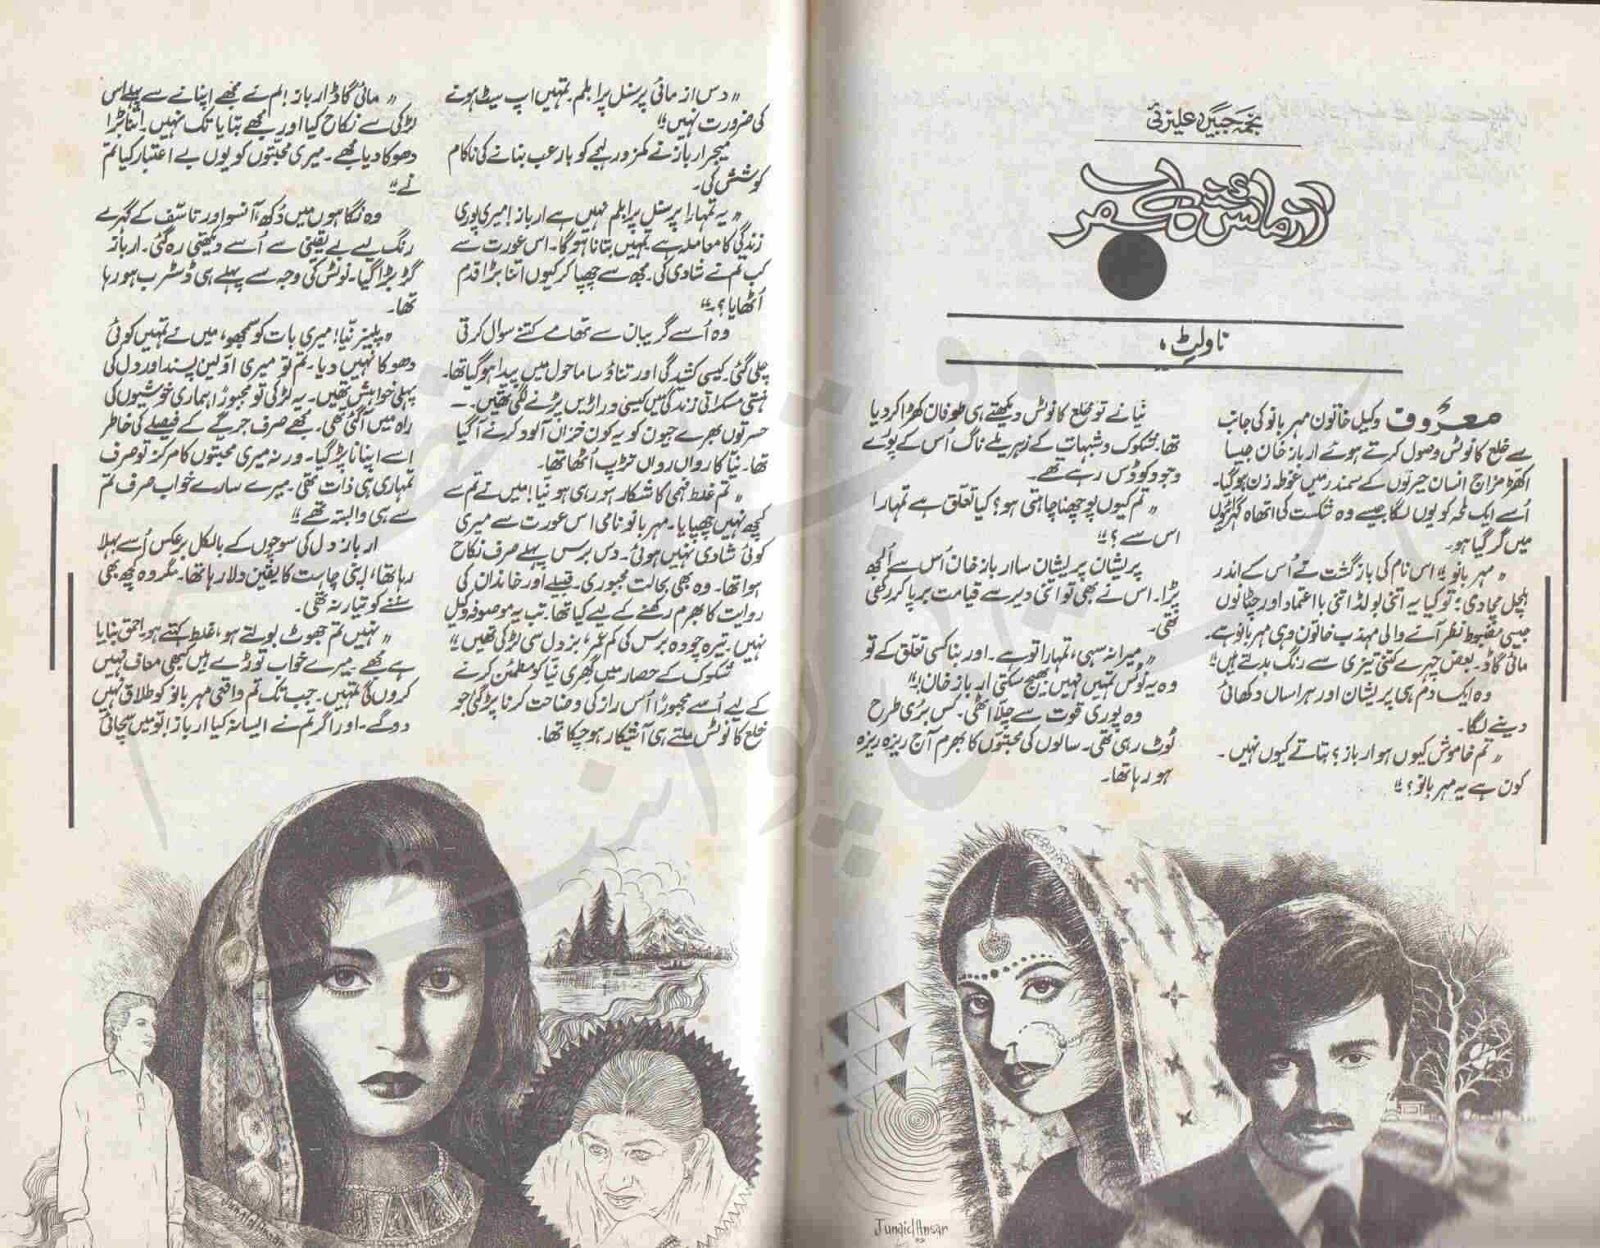 نجمہ جبیں علیزئی
آزمائش کا سفر
ناولٹ
معروف وکیل خاتون مہربانو کی جانب
سے خلع کا نوٹس وصول کرتے ہوئے ارباز خان جیسا
اکھڑ مزاج انسان حیرتوں کے سمندر میں غوطہ زن ہوگیا۔
اُسے ایک لمحہ کو یوں لگا جیسے وہ شکست کی اتھاہ گہرائیوں
میں گر گیا ہو۔
"مہربانو!" اس نام کی بازگشت نے اُس کے اندر
ہلچل مچادی: تو کیا یہ اتنی بولڈ اتنی بااعتماد اور چٹانوں
جیسی مضبوط نظر آنے والی مہذب خاتون وہی مہربانو ہے۔
مائی گاڈ۔ بعض چہرے کتنی تیزی سے رنگ بدلتے ہیں!"
وہ ایک دم ہی پریشان اور ہراساں دکھائی
دینے لگا۔
"تم خاموش کیوں ہو ارباز؟ بتاتے کیوں نہیں۔
کون ہے یہ مہربانو؟"
نیّا نے تو خلع کا نوٹس دیکھتے ہی طوفان کھڑا کردیا
تھا۔ شکوک و شبہات کے زہریلے ناگ اُس کے پورے
وجود کو ڈس رہے تھے۔
"تم کیوں پوچھنا چاہتی ہو؟ کیا تعلق ہے تمہارا
اس سے؟"
پریشان پریشان سا ارباز خان اُس سے اُلجھ
پڑا۔ اس نے بھی تو اتنی دیر سے قیامت برپا کر رکھی
تھی۔
"میرا نہ سہی، تمہارا تو ہے۔ اور بنا کسی تعلق کے تو
وہ یہ نوٹس تمہیں نہیں بھیج سکتی ارباز خان!"
وہ پوری قوت سے چلّا اٹھی۔ کس بُری طرح
ٹوٹ رہی تھی۔ سالوں کی محبتوں کا بھرم آج ریزہ ریزہ
ہو رہا تھا۔
"دس از مائی پرسنل پرابلم۔ تمہیں اپ سیٹ ہونے
کی ضرورت نہیں!"
میجر ارباز نے کمزور لہجے کو بارعب بنانے کی ناکام
کوشش کی۔
"یہ تمہارا پرسنل پرابلم نہیں ہے ارباز! میری پوری
زندگی کا معاملہ ہے تمہیں بتانا ہوگا۔ اس عورت سے
کب تم نے شادی کی۔ مجھ سے چھپا کر کیوں اتنا بڑا قدم
اُٹھایا؟"
وہ اُسے گریبان سے تھامے کتنے سوال کرتی
چلی گئی۔ کیسی کشیدگی اور تناؤ سا ماحول میں پیدا ہوگیا تھا۔
ہنستی مسکراتی زندگی میں کیسی دراڑیں پڑنے لگی تھیں۔
حسرتوں بھرے جیون کو یہ کون خزاں آلود کرنے آ گیا
تھا۔ نیّا کا رواں رواں تڑپ اُٹھا تھا۔
"تم غلط فہمی کا شکار ہو رہی ہو نیّا! میں نے تم سے
کچھ نہیں چھپایا۔ مہربانو نامی اس عورت سے میری
کوئی شادی نہیں ہوئی۔ دس برس پہلے صرف نکاح
ہوا تھا۔ وہ بھی بحالت مجبوری۔ قبیلے اور خاندان کی
روایت کا بھرم رکھنے کے لیے کیا تھا۔ تب یہ موصوفہ وکیل
نہیں۔ تیرہ چودہ برس کی کم عمر، بزدل سی لڑکی تھیں!"
شکوک کے حصار میں گھری نیّا کو مطمئن کرنے
کے لیے اُسے مجبوراً اُس راز کی وضاحت کرنا پڑ گئی جو
خلع کا نوٹس ملتے ہی آشکار ہوچکا تھا۔
"مائی گاڈ ارباز! تم نے مجھے اپنانے سے پہلے اس
لڑکی سے نکاح کیا اور مجھے بتایا تک نہیں۔ اتنا بڑا
دھوکا دیا مجھے۔ میری محبتوں کو یوں بے اعتبار کیا تم
نے!"
وہ نگاہوں میں دُکھ، آنسو اور تاسف کے گہرے
رنگ لیے بے یقینی سے اُسے دیکھتی رہ گئی۔ ارباز
گڑبڑا گیا۔ نوٹس کی وجہ سے پہلے ہی ڈسٹرب ہو رہا
تھا۔
"پلیز نیّا! میری بات کو سمجھو، میں نے تمہیں کوئی
دھوکا نہیں دیا۔ تم تو میری اوّلین پسند اور دل کی
پہلی خواہش تھیں۔ یہ لڑکی تو مجبوراً ہماری خوشیوں کی
راہ میں آگئی تھی۔ مجھے صرف جرگے کے فیصلے کی خاطر
اسے اپنانا پڑ گیا۔ ورنہ میری محبتوں کا مرکز تو صرف
تمہاری ہی ذات تھی۔ میرے سارے خواب صرف تم
سے ہی وابستہ تھے!"
ارباز دل کی سوچوں کے بالکل برعکس اُسے بہلا
رہا تھا، اپنی چاہت کا یقین دلا رہا تھا۔ مگر وہ کچھ بھی
سننے کو تیار نہ تھی۔
"نہیں تم جھوٹ بولتے ہو، غلط کہتے ہو۔ احمق بنایا
ہے مجھے۔ میرے خواب توڑے ہیں کبھی معاف نہیں
کروں گی تمہیں۔ جب تک تم واقعی مہربانو کو طلاق نہیں
دو گے۔ اور اگر تم نے ایسا نہ کیا ارباز! تو میں سچائی
Junaid Ansar